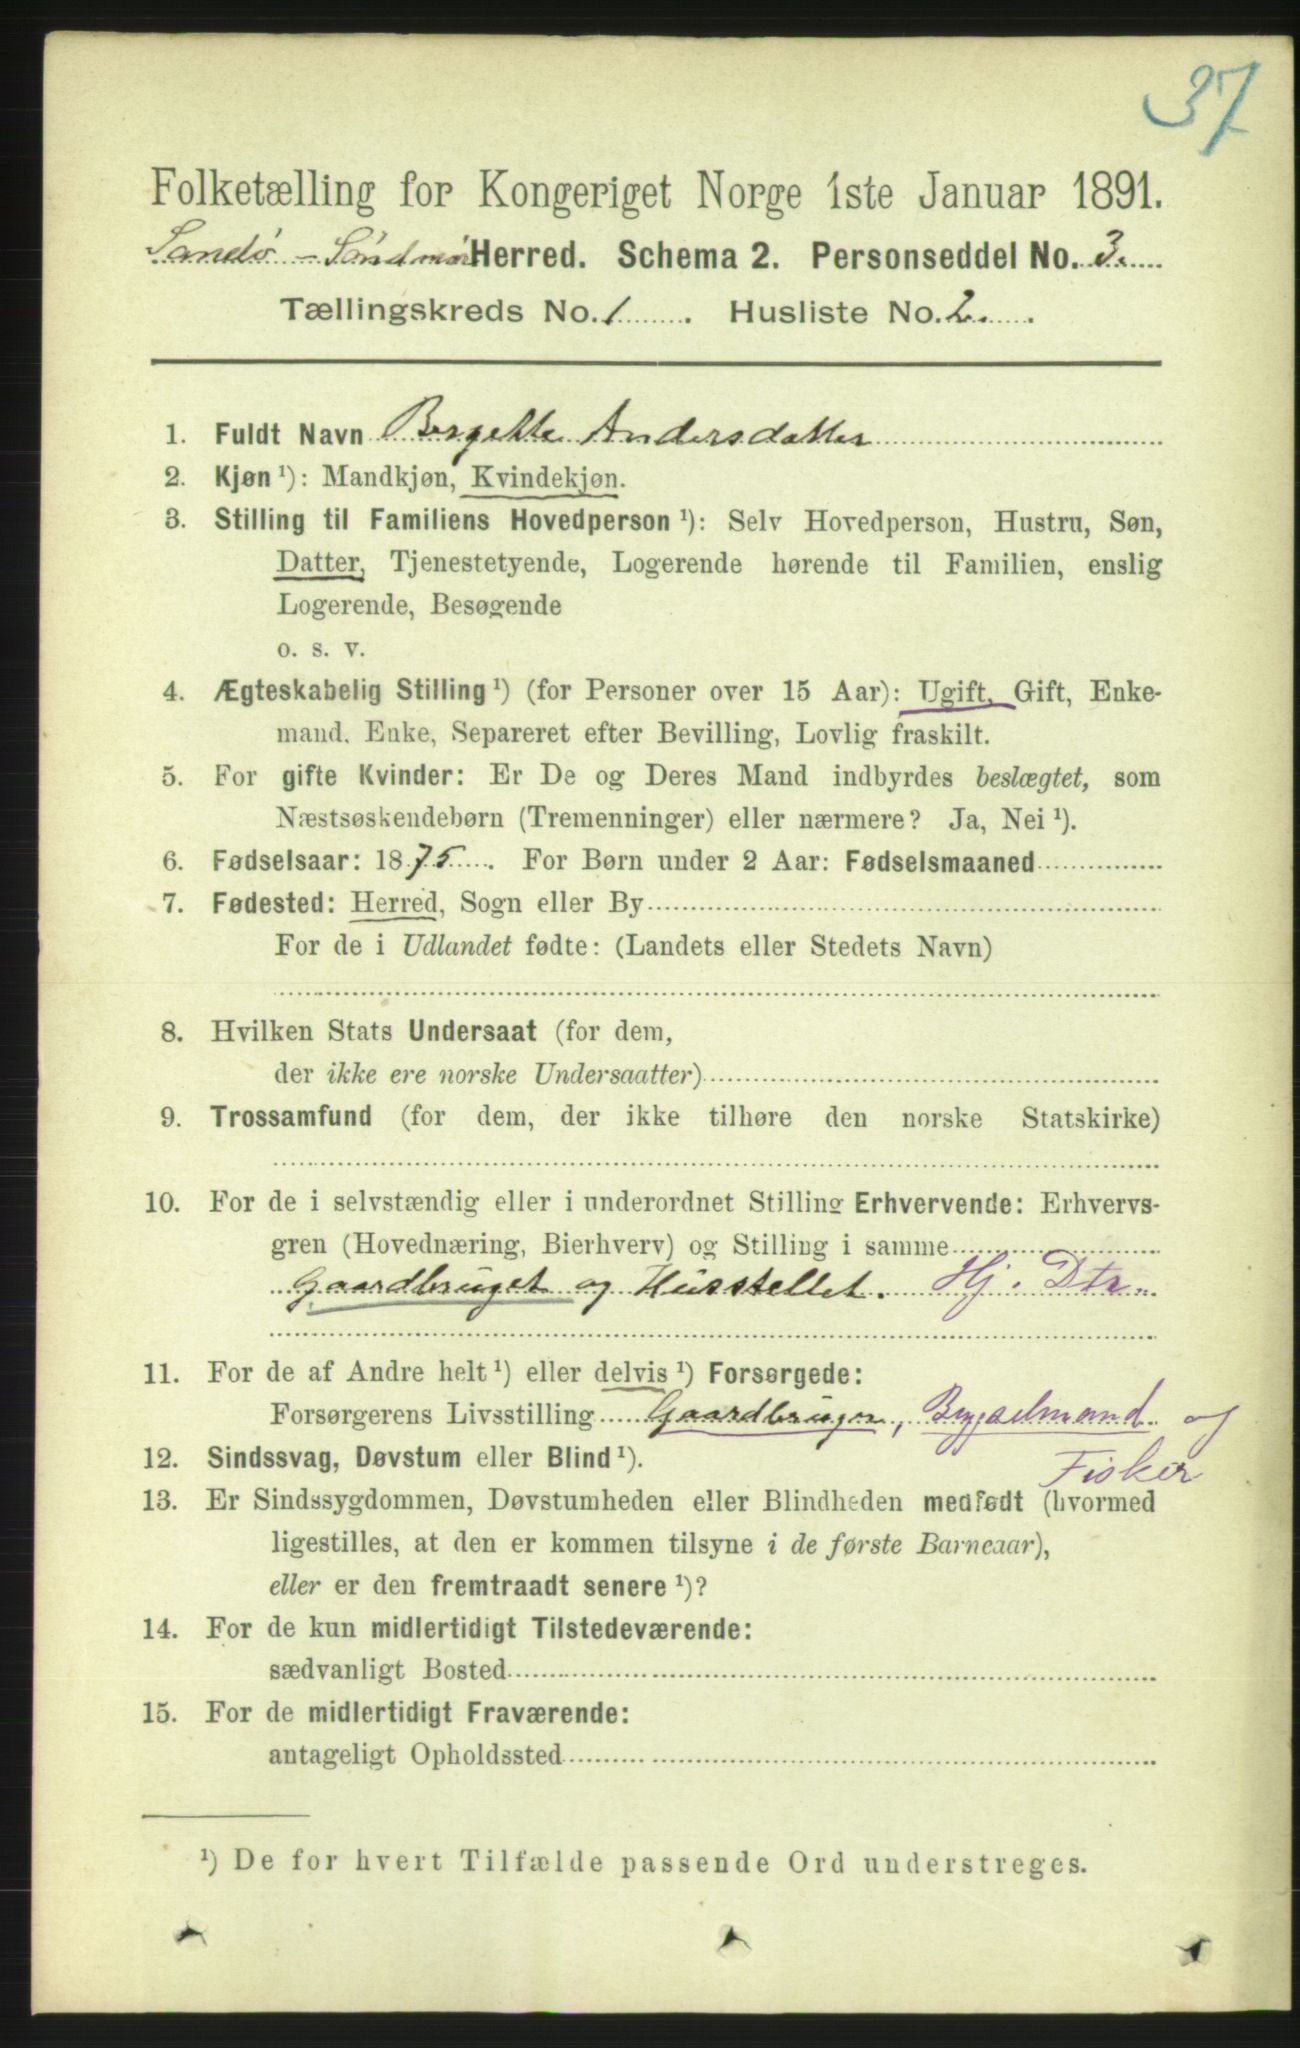 37
Folketælling for Kongeriget Norge 1ste Januar 1891.
Sandö - Söndmör Herred. Schema 2. Personseddel No. 3.
Tællingskreds No. 1. Husliste No. 2.
1. Fuldt Navn Bergette Andersdatter
2. Kjøn ¹): Mandkjøn, Kvindekjøn.
3. Stilling til Familiens Hovedperson ¹): Selv Hovedperson, Hustru, Søn,
Datter, Tjenestetyende, Logerende hørende til Familien, enslig
Logerende, Besøgende
o. s. v.
4. Ægteskabelig Stilling ¹) (for Personer over 15 Aar): Ugift, Gift, Enke-
mand, Enke, Separeret efter Bevilling, Lovlig fraskilt.
5. For gifte Kvinder: Er De og Deres Mand indbyrdes beslægtet, som
Næstsøskendebørn (Tremenninger) eller nærmere? Ja, Nei ¹).
6. Fødselsaar: 1875. For Børn under 2 Aar: Fødselsmaaned
7. Fødested: Herred, Sogn eller By
For de i Udlandet fødte: (Landets eller Stedets Navn)
8. Hvilken Stats Undersaat (for dem,
der ikke ere norske Undersaatter)
9. Trossamfund (for dem, der ikke tilhøre den norske Statskirke)
10. For de i selvstændig eller i underordnet Stilling Erhvervende: Erhvervs-
gren (Hovednæring, Bierhverv) og Stilling i samme
Gaardbruget og Husstellet. Hj. Dtr.
11. For de af Andre helt ¹) eller delvis ¹) Forsørgede:
Forsørgerens Livsstilling Gaardbruger, Bygselmand og
Fisker
12. Sindssvag, Døvstum eller Blind ¹).
13. Er Sindssygdommen, Døvstumheden eller Blindheden medfødt (hvormed
ligestilles, at den er kommen tilsyne i de første Barneaar),
eller er den fremtraadt senere ¹)?
14. For de kun midlertidigt Tilstedeværende:
sædvanligt Bosted
15. For de midlertidigt Fraværende:
antageligt Opholdssted
¹) De for hvert Tilfælde passende Ord understreges.